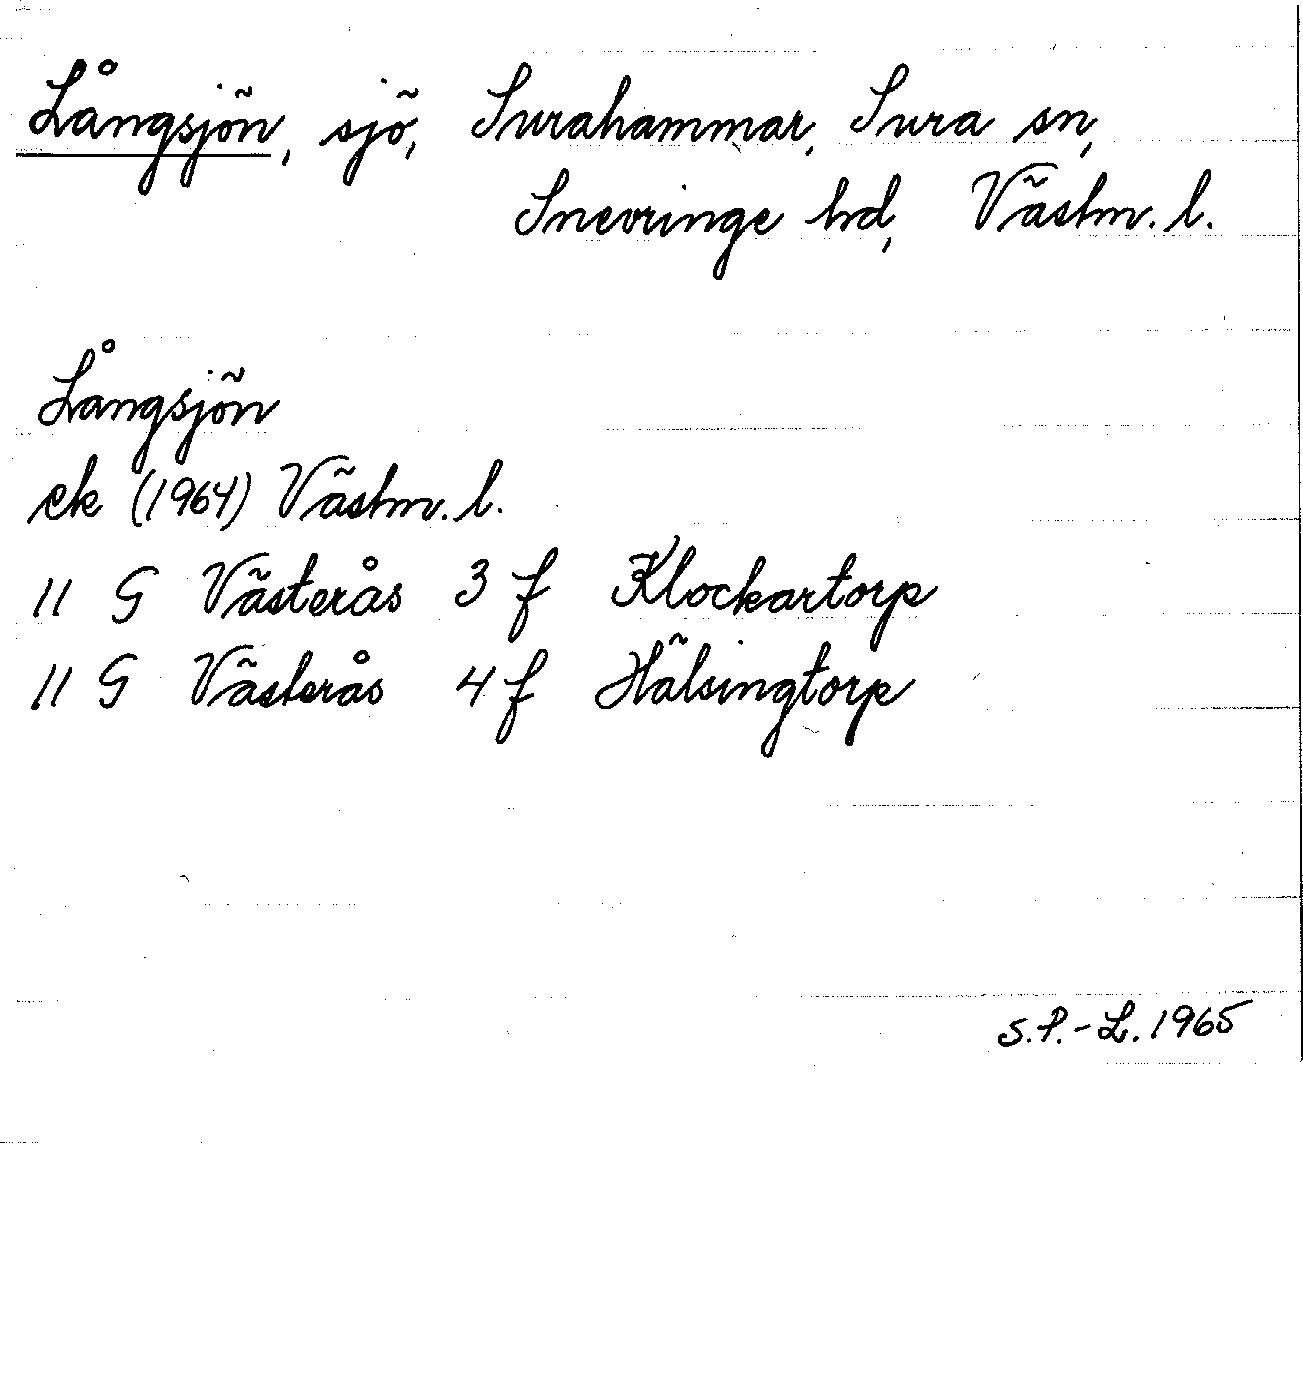 Långsjön, sjö, Surahammar, Sura sn,
Snevringe hd, Västm. l.
Långsjön
ek (1964) Västm. l.
11 G Västerås 3 f Klockartorp
11 G Västerås 4 f Hälsingtorp
S.P.-L. 1965